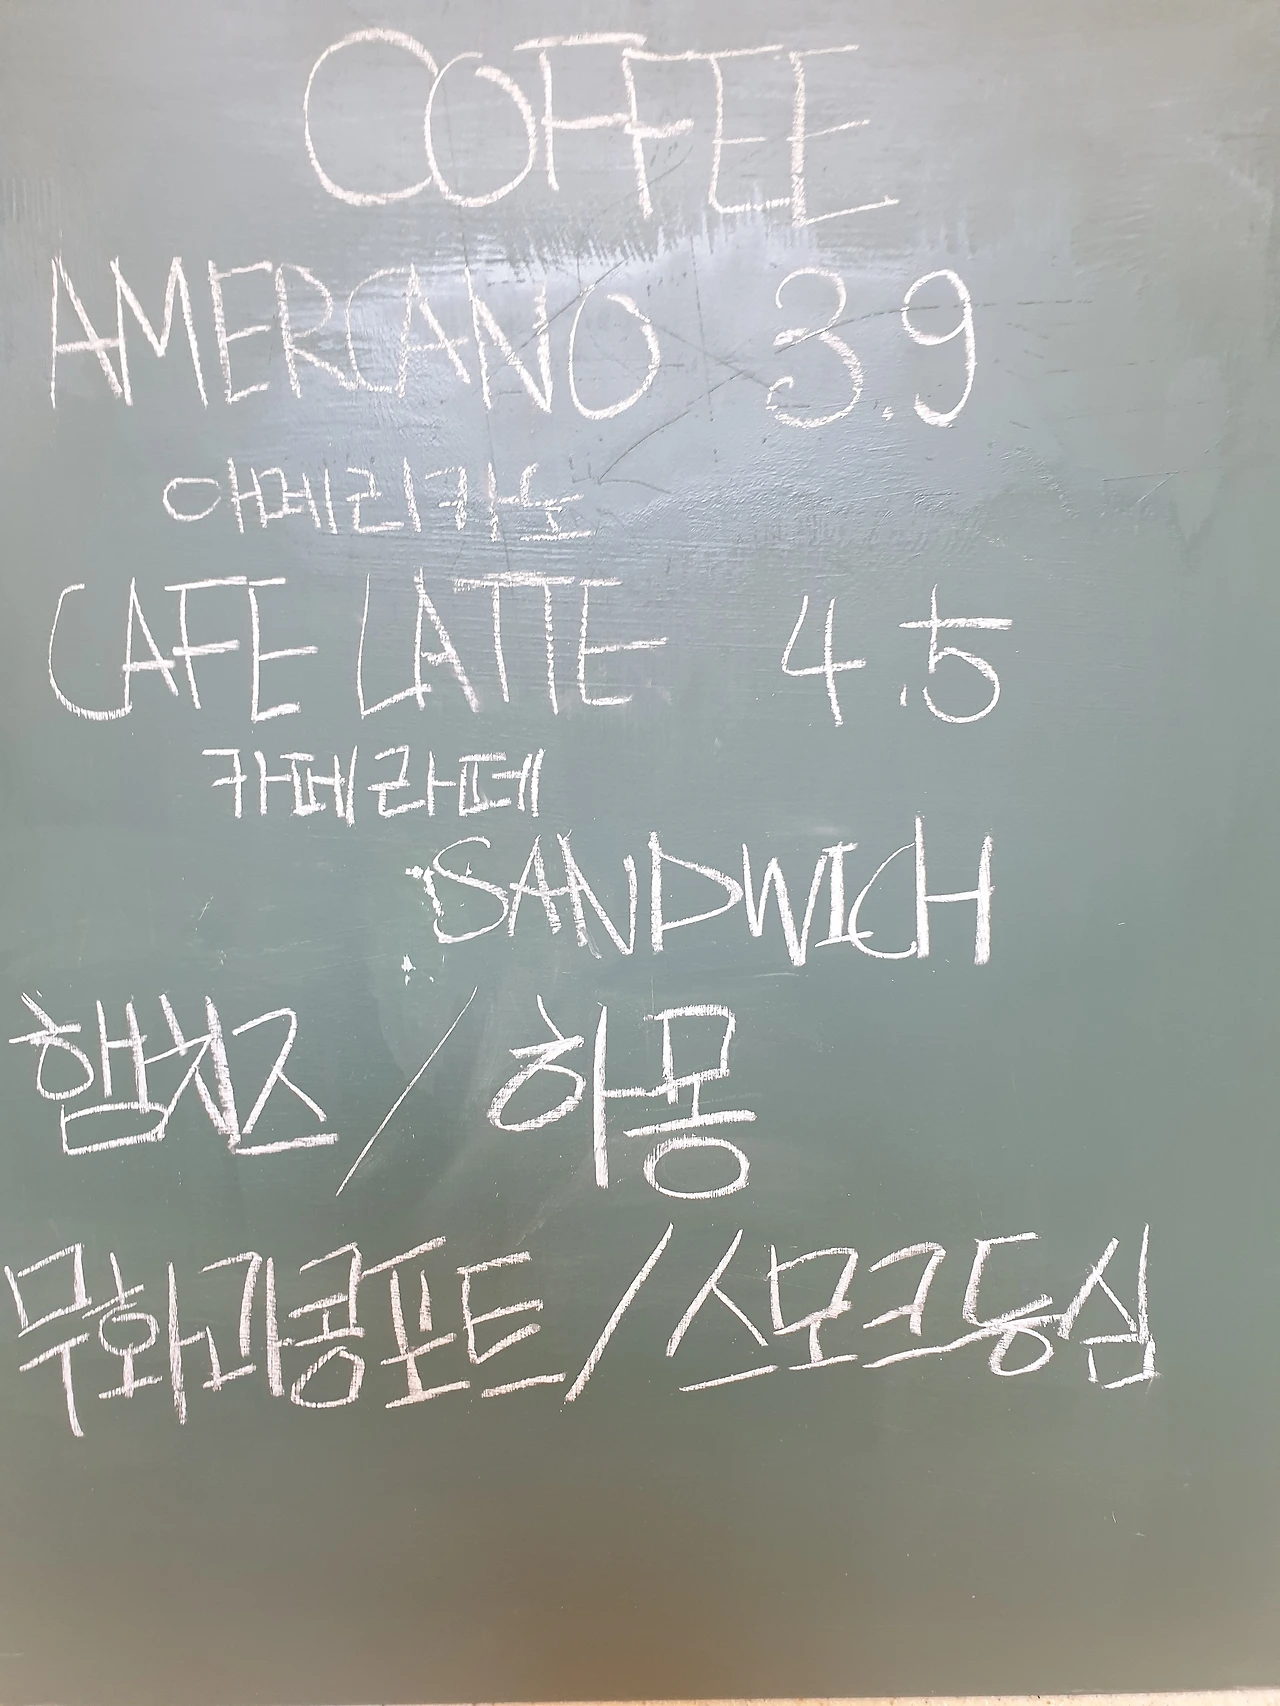 COFFEE
AMERCANO 3.9
아메리카노
CAFE LATTE 4.5
카페라떼
SANDWICH
햄치즈 / 하몽
무화과콩포트 / 스모크등심